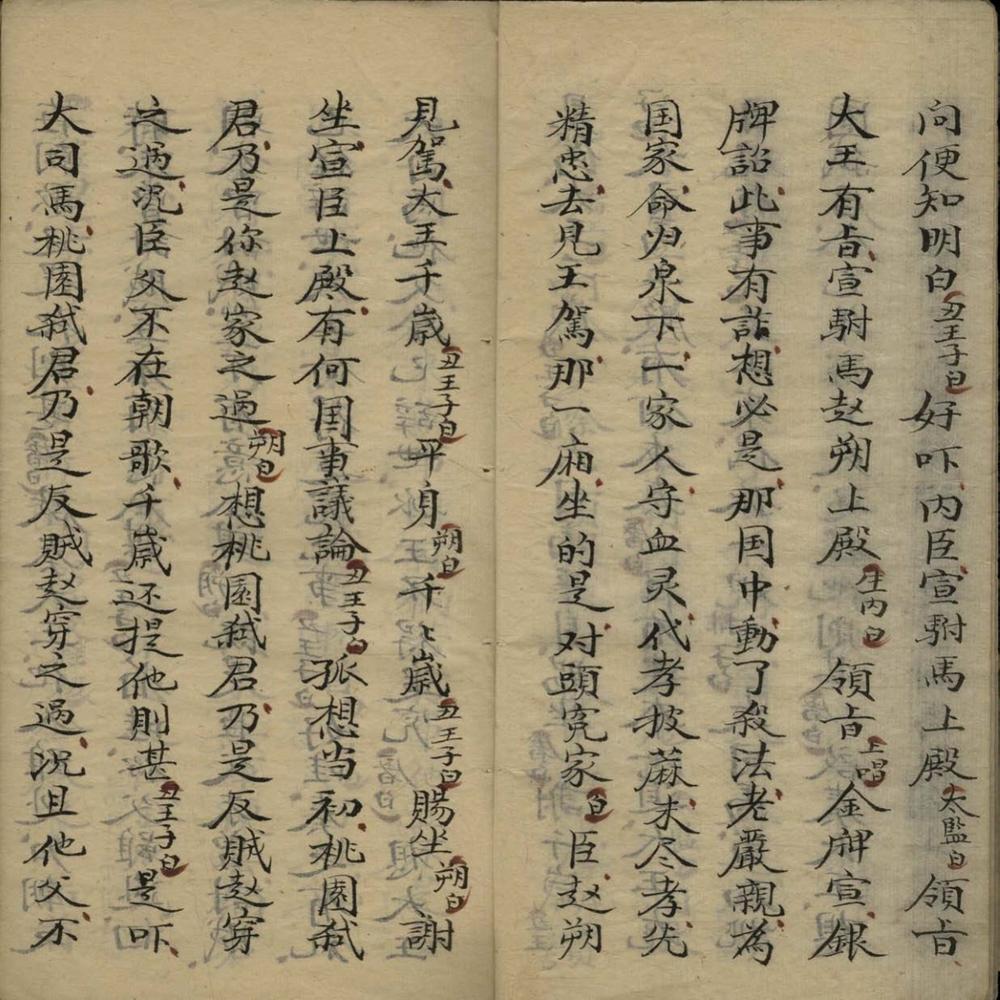 问便知明白丑王子白好吓内臣宣駙馬上殿太監白領旨
大王有旨宣駙馬赵朔上殿生内白領旨上唱金牌宣銀
牌詔此事有詐想必是那国中動了殺法老嚴親為
国家命归泉下一家人守血灵代孝披蔴未尽孝先
精忠去見王駕那一廂坐的是对頭宄家白臣赵朔
見駕大王千歲丑王子白平身朔白千〻歲丑王子白賜坐朔白謝
坐宣臣上殿有何国事議論丑王子白孤想当初桃園弒
君乃是你赵家之過朔白想桃園弒君乃是反賊赵穿
之過況臣父不在朝歌千歲还提他則甚丑王子白是吓
大司馬桃園弒君乃是反賊赵穿之過況且他父不